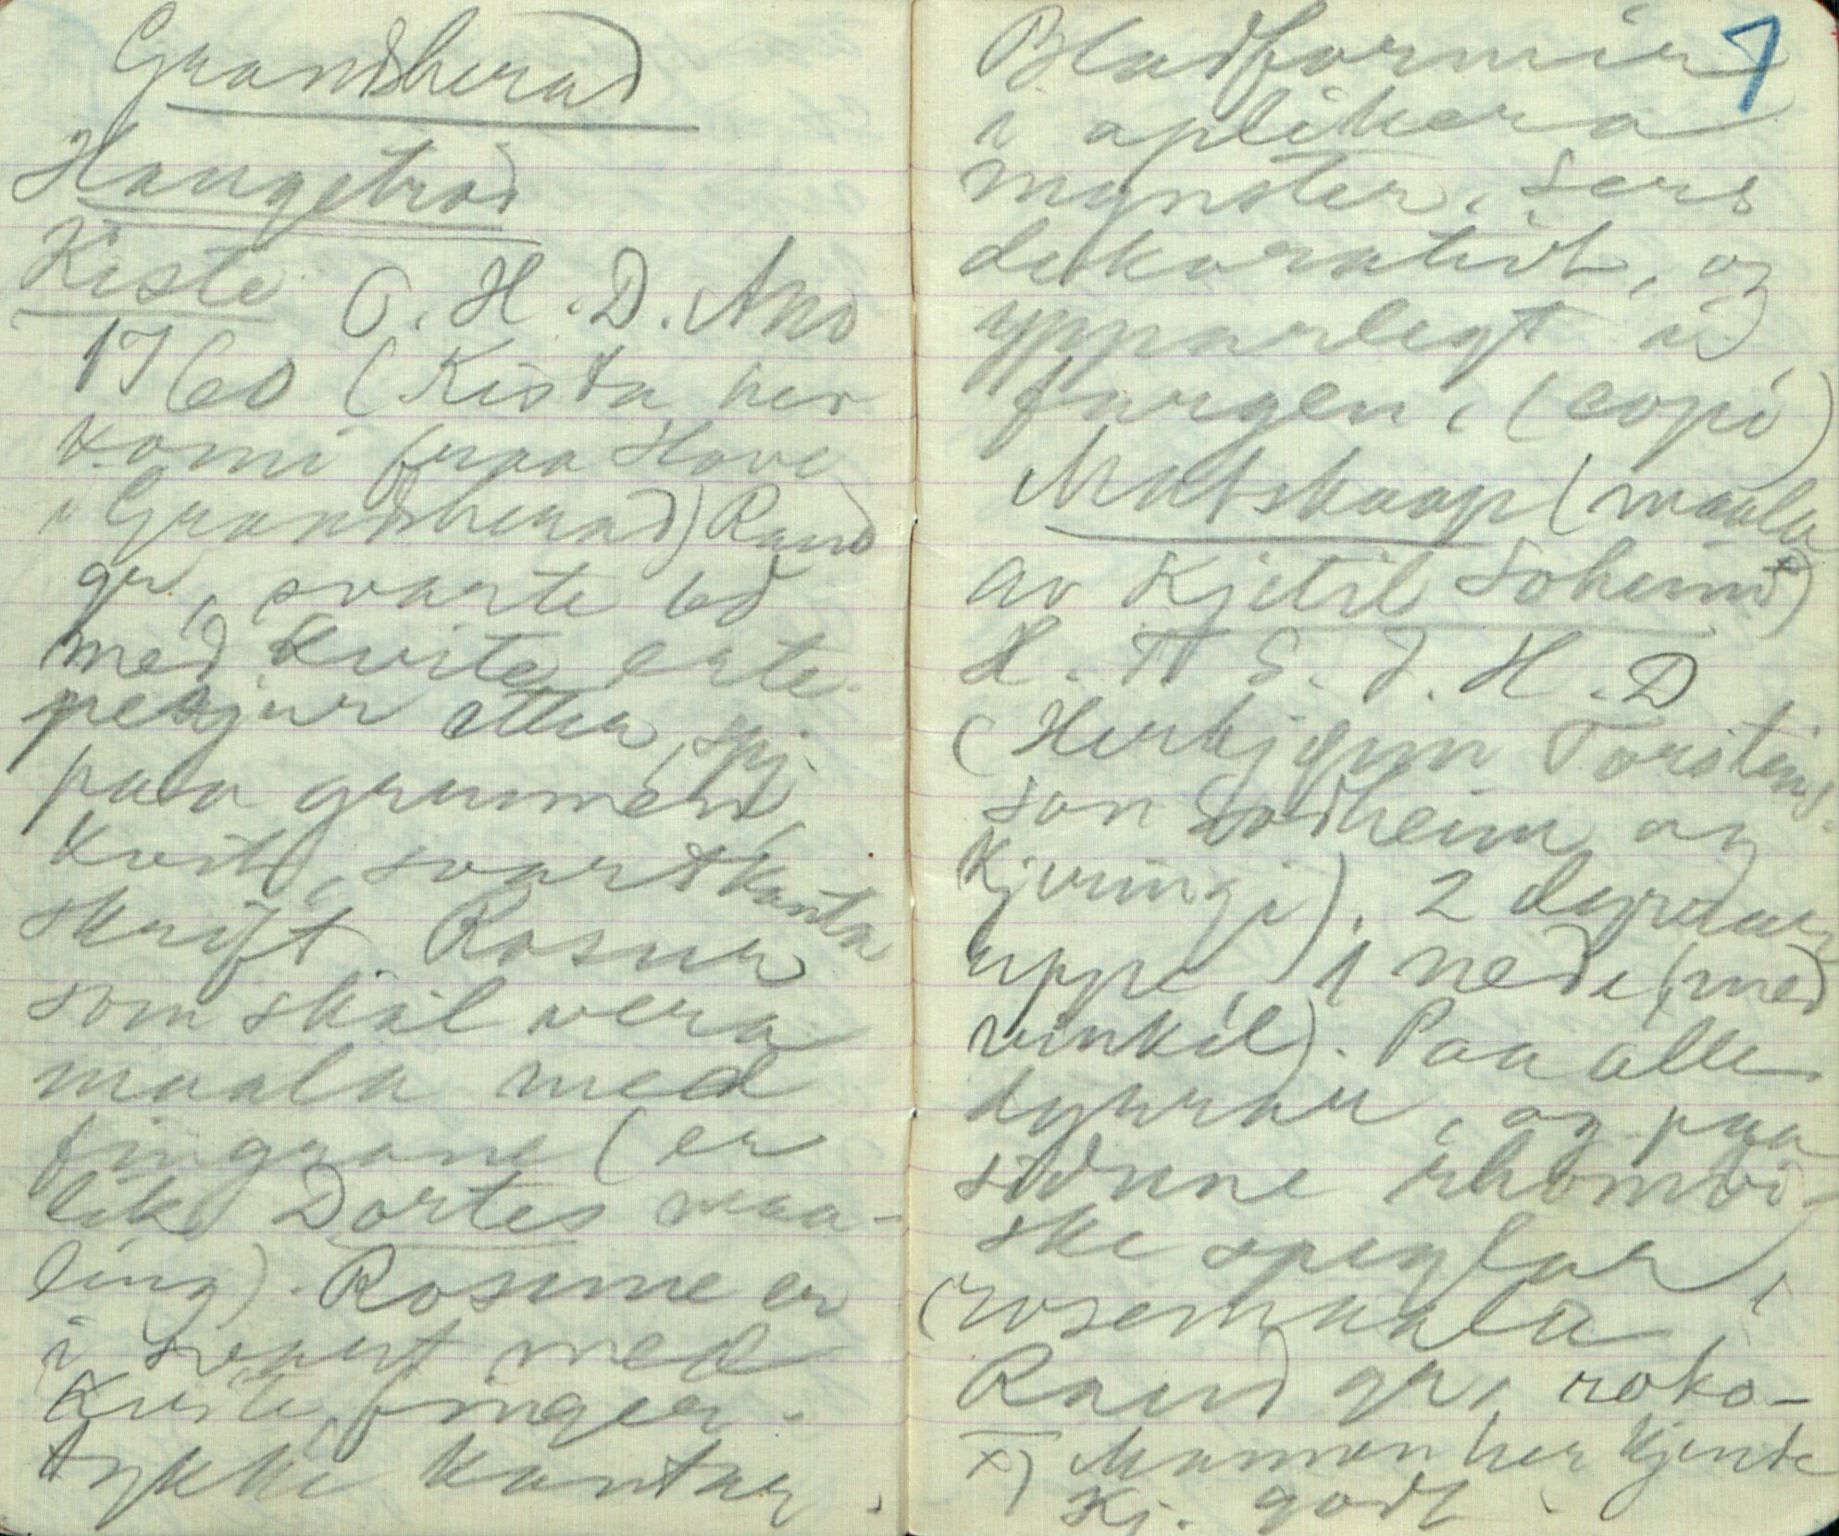 Grandsherad
Haugetrød
Kiste O. H. D. Ano
1760 (Kista her
komi fraa Hove
i Grandsherad) Raud
gr, svarte bd
med kvite erte
perjur etter, spj.
paa grunnen,
kvit, svartkanta
skrift. Rosur
som skal vera
maala med
fingrane (er
lik Dortes maa-
ling). Rosune er
i svart med
kvite, finger-
tykke kantar.
7
Bladformir
i aplikera
mynster, sers
dekorativt, og
ypparlegt i
fargen, (copi)
Matskaap (maala
av Kjetil Soheim x)
H. T. S. I. H. D
(Herbjørn Torsteins-
son Sodheim og
Kjeringi), 2 dyrar
uppe, 1 nede (med
vinkil). Paa alle
dyrar, og paa
sidune rhomboi-
ske speglar,
(rosemaala,
Raud gr, roko-
x) Mannen her kjende
Kj. godt.